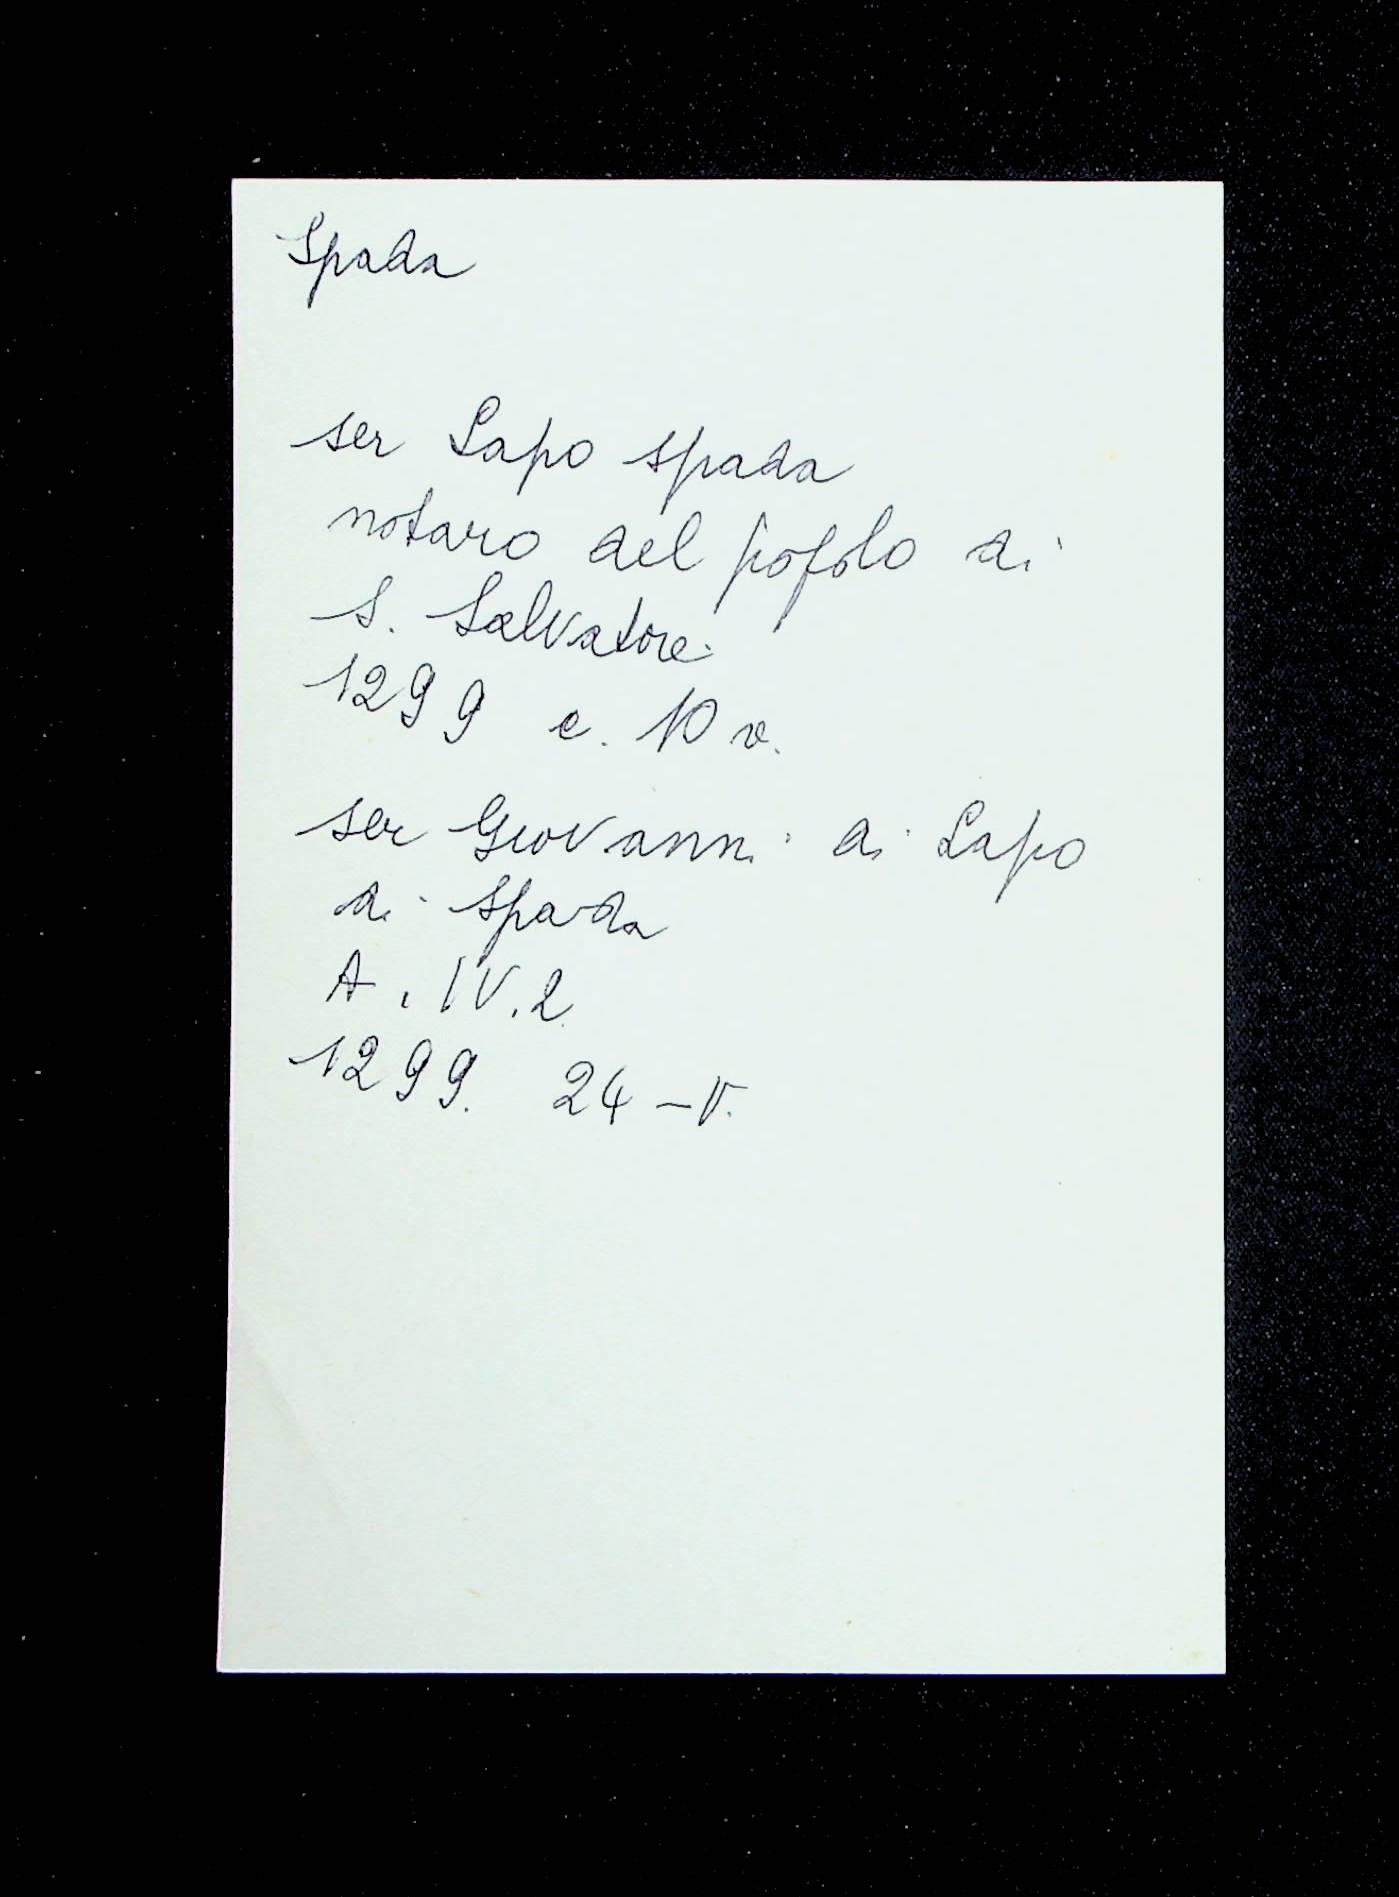 Spada
ser Lapo spada
notaro del popolo di
S. Salvatore.
1299 c. 10 v.
ser Giovanni di Lapo
di spada
A. IV. 2
1299. 24 - V.